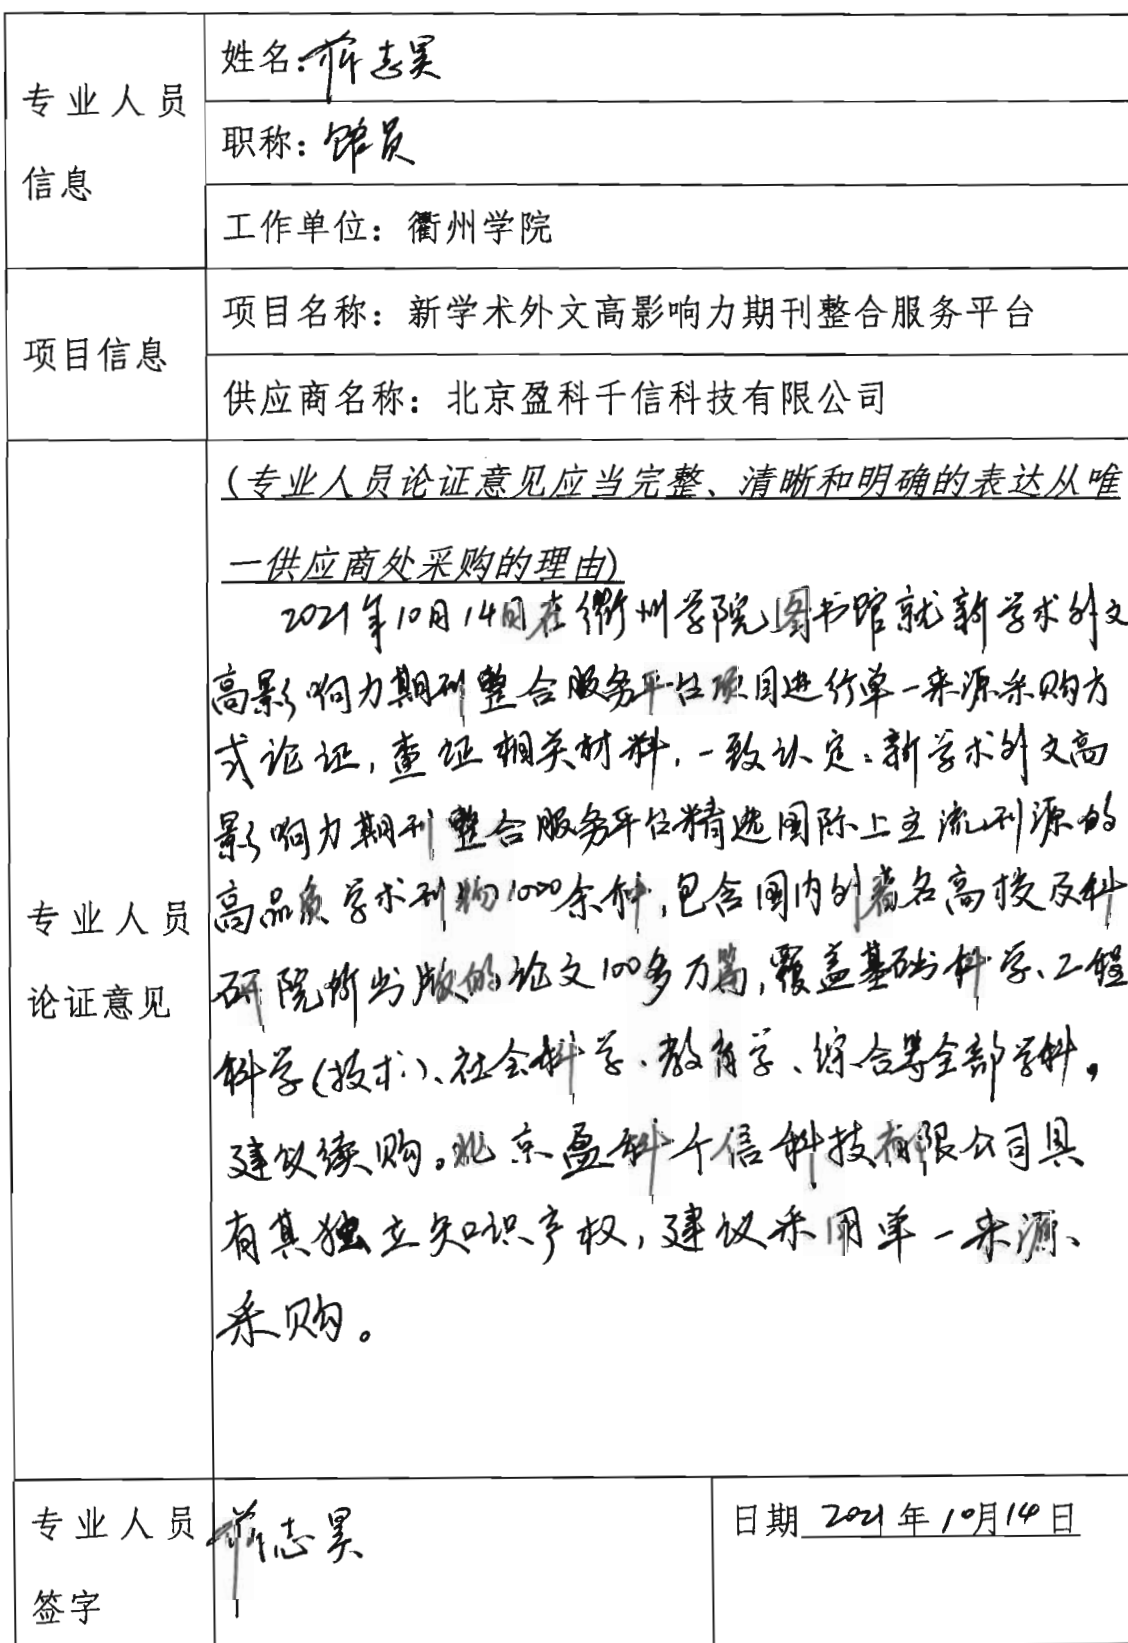 专业人员
信息
姓名:志昊
职称:馆员
工作单位:衢州学院
项目信息
项目名称:新学术外文高影响力期刊整合服务平台
供应商名称:北京盈科千信科技有限公司
专业人员
论证意见
(专业人员论证意见应当完整、清晰和明确的表达从唯
一供应商处采购的理由)
2021年10月14日在衢州学院图书馆就新学术外文
高影响力期刊整合服务平台项目进行单一来源采购方
式论证,查证相关材料,一致认定:新学术外文高
影响力期刊整合服务平台精选国际上主流刊源的
高品质学术刊物1000余种,包含国内外著名高校及科
研院所出版的论文100多万篇,覆盖基础科学、工程
科学(技术)、社会科学、教育学、综合等全部学科。
建议续购。北京盈科千信科技有限公司具
有其独立知识产权,建议采用单一来源
采购。
专业人员
签字
志昊
日期 2021年10月14日